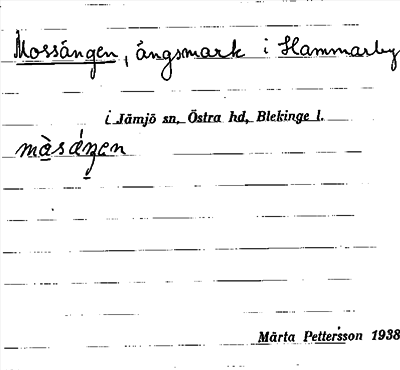 Mossängen, ängsmark i Hammarby
i Jämjö sn, Östra hd, Blekinge l.
màsáŋen
Märta Pettersson 1938